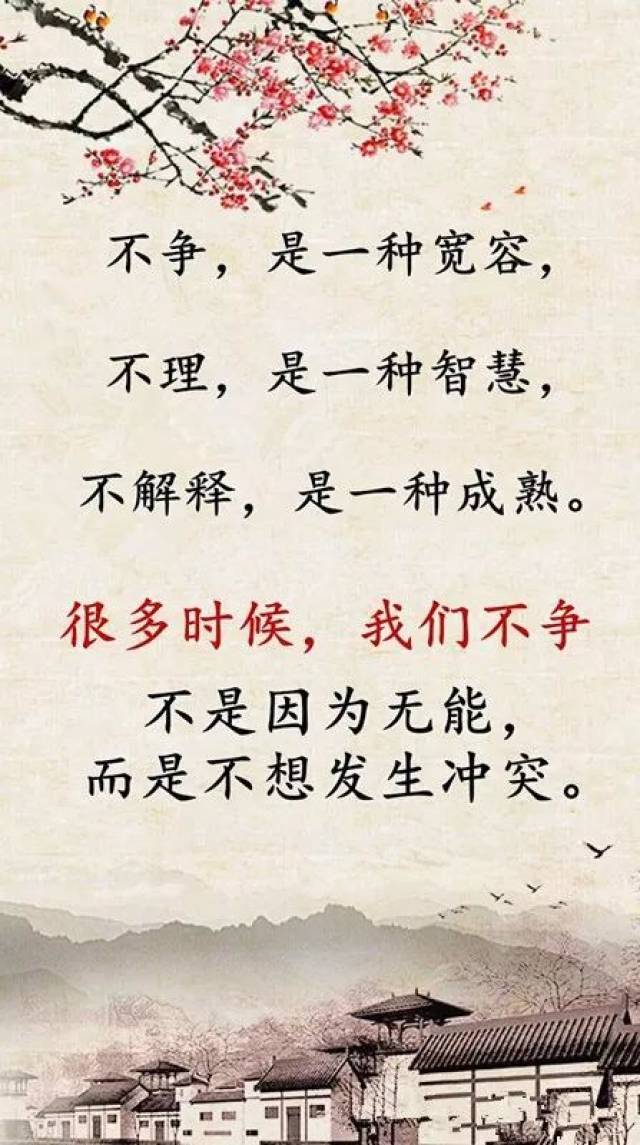 不争，是一种宽容，
不理，是一种智慧，
不解释，是一种成熟。
很多时候，我们不争
不是因为无能，
而是不想发生冲突。